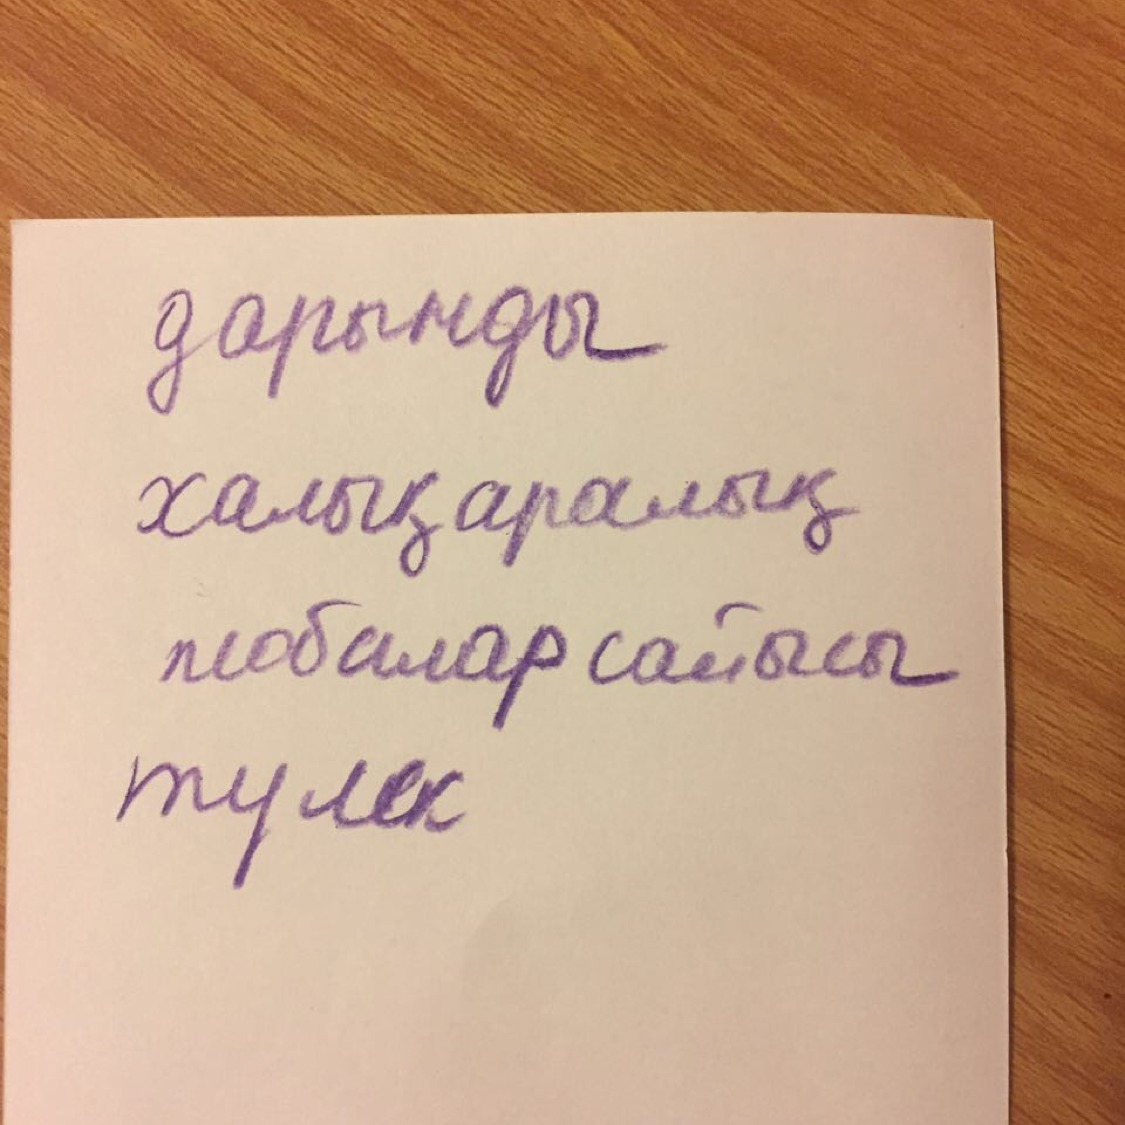 дарынды
халықаралық
жобалар сайысы
түлек